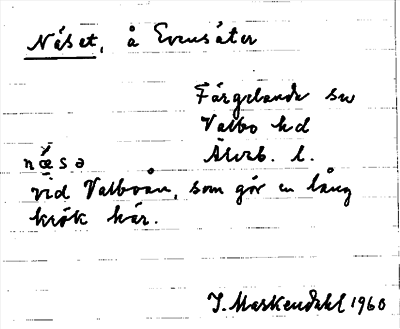 Näset, å Evensäter
Färgelanda sn
Valbo hd
Älvsb. l.
næ̀sə
vid Valboån, som gör en lång
krök här.
J. Maskendahl 1960